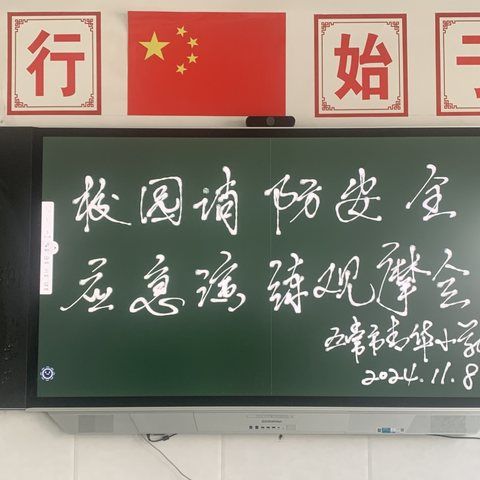 行 始 于
校园消防安全
应急演练观摩会
五常市 华小学
2024.11.8